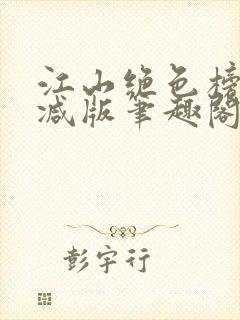 江山绝色榜
减版笔趣阁
彭宇行